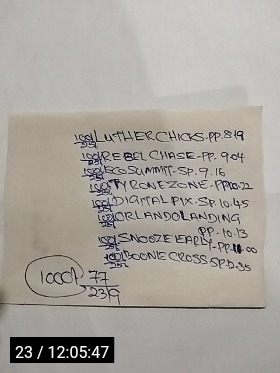 100/ LUTHER CHICKS-PP. 8.19
100/ REBEL CHASE-PP. 9.04
100/ ECO SUMMIT-SP. 9.16
100/ TYRONE ZONE-PP 10.22
100/ DIGITAL PIX-SP. 10.45
100/ ORLANDO LANDING
PP. 10.13
100/ SNOOZE EARLY-PP-11.00
100/ BOONE CROSS SP. 0.35
1000/ 77
239
23 / 12:05:47